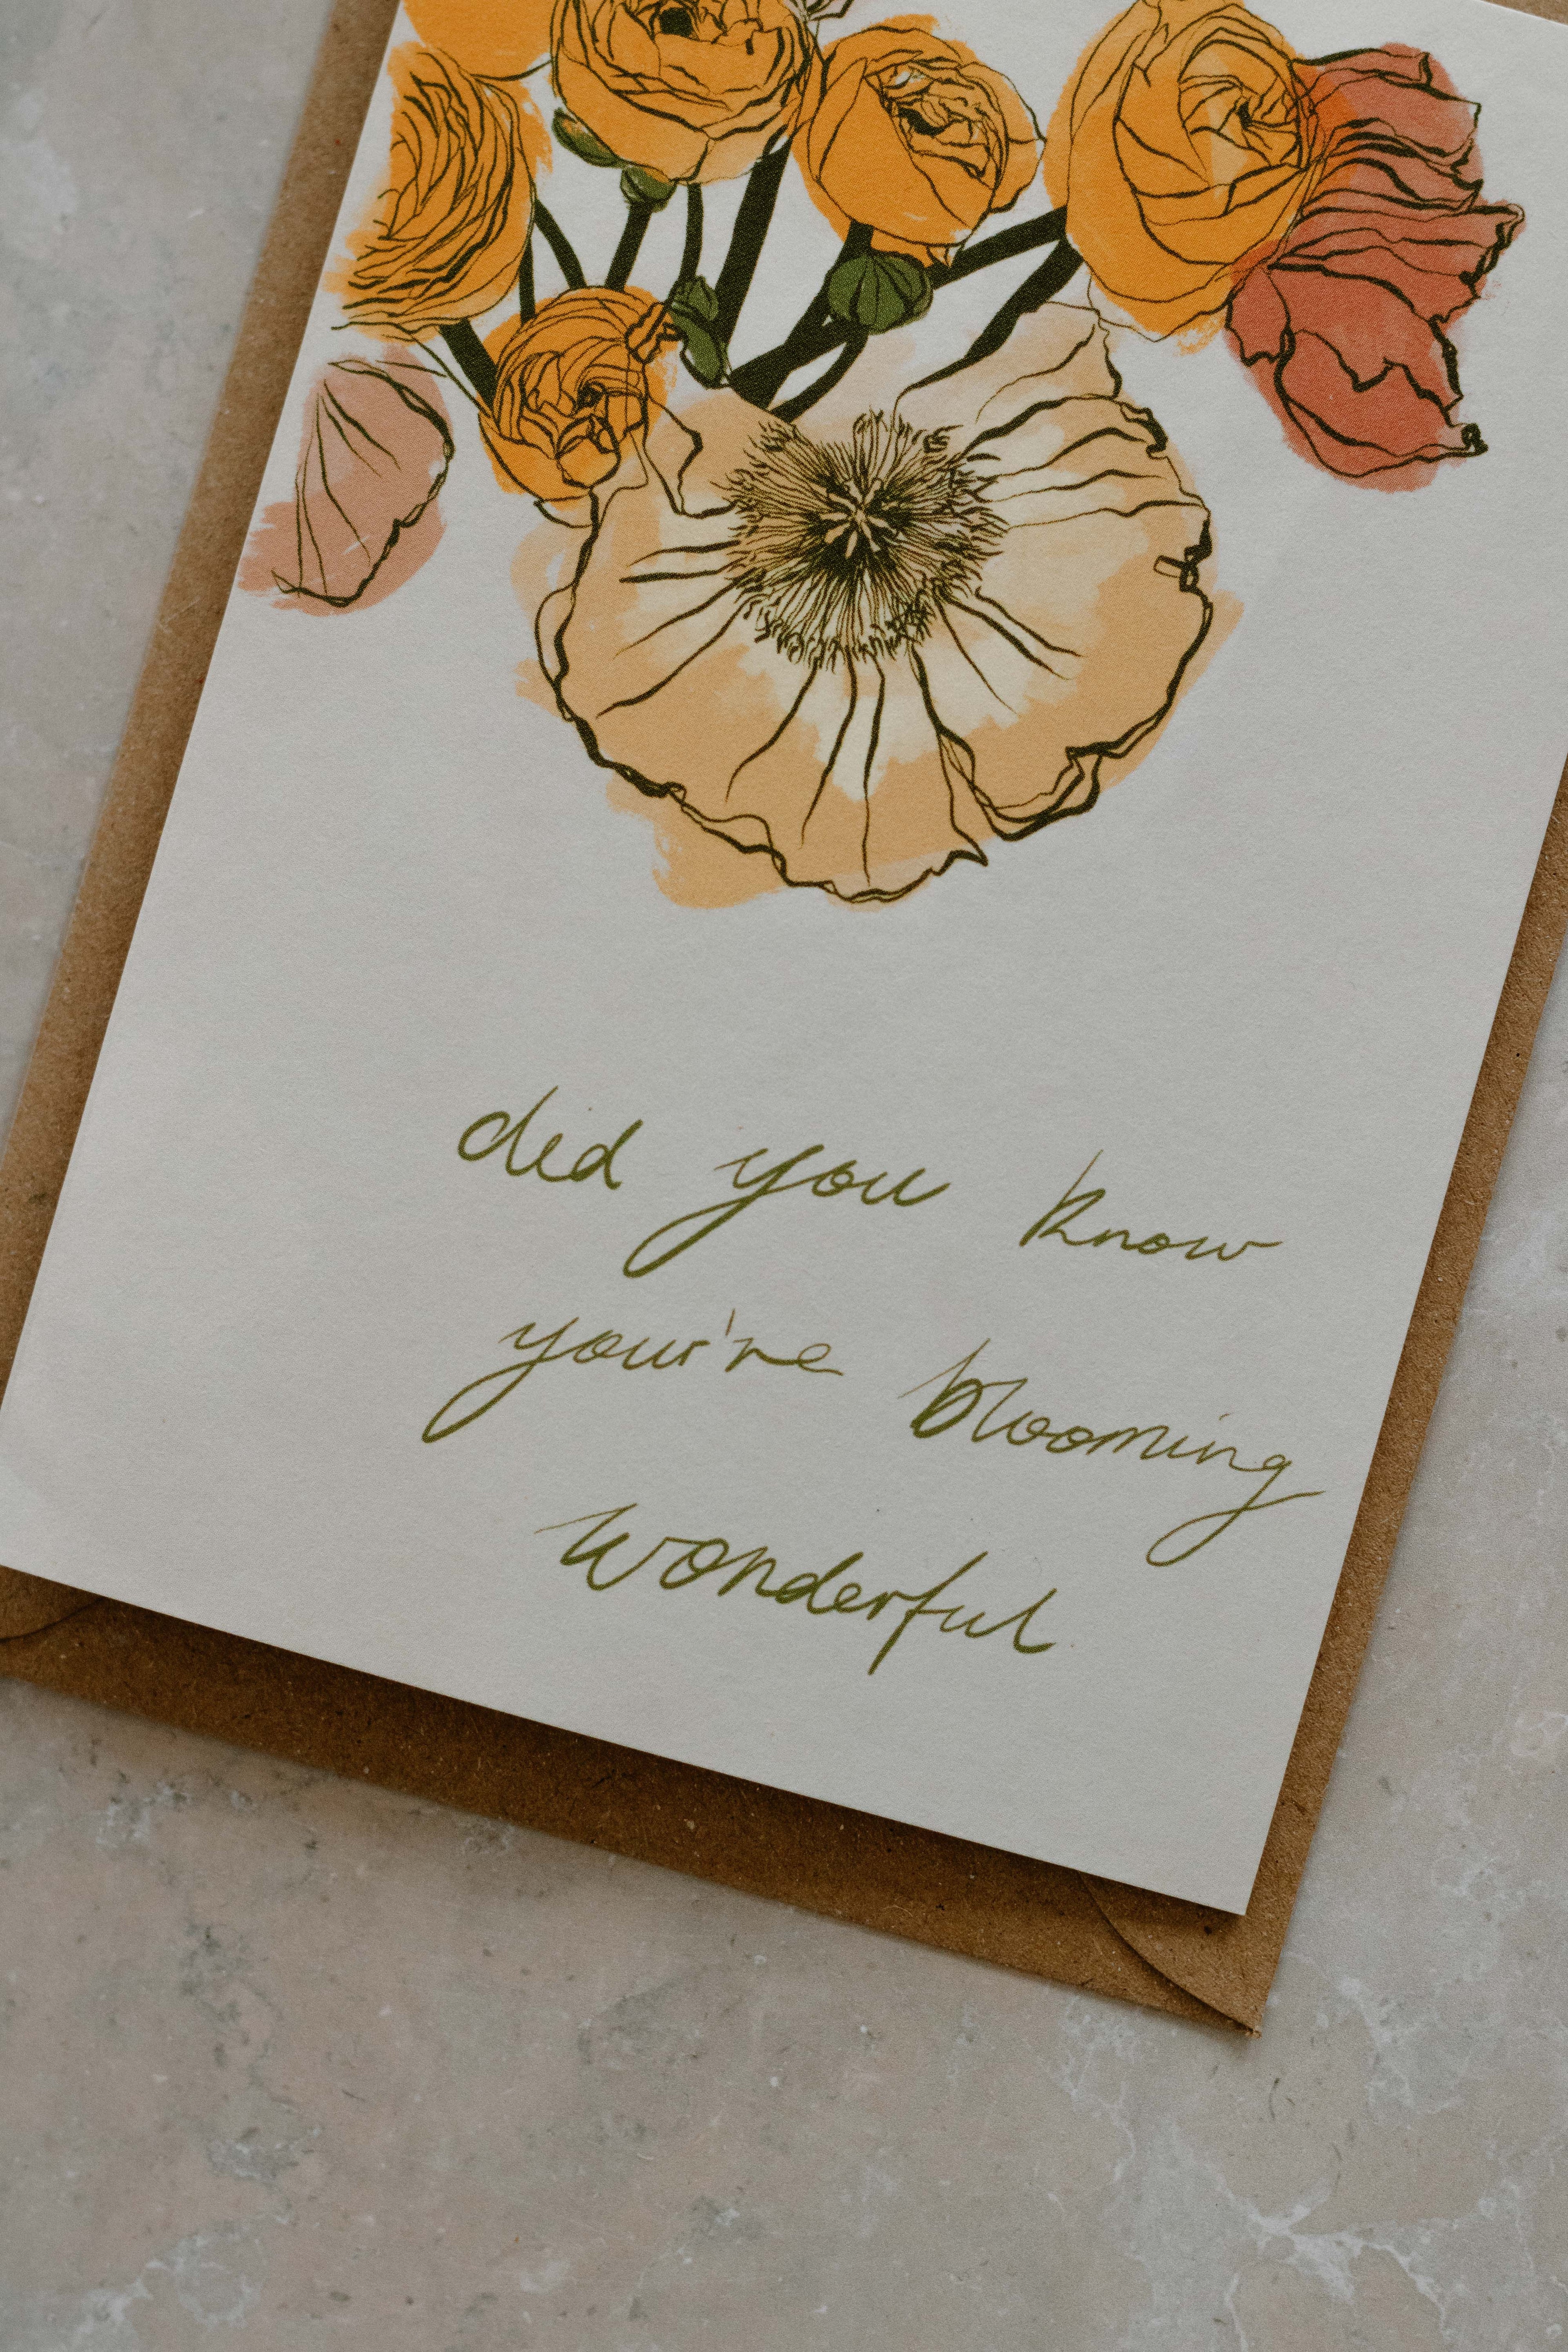 did you know
you're blooming
wonderful